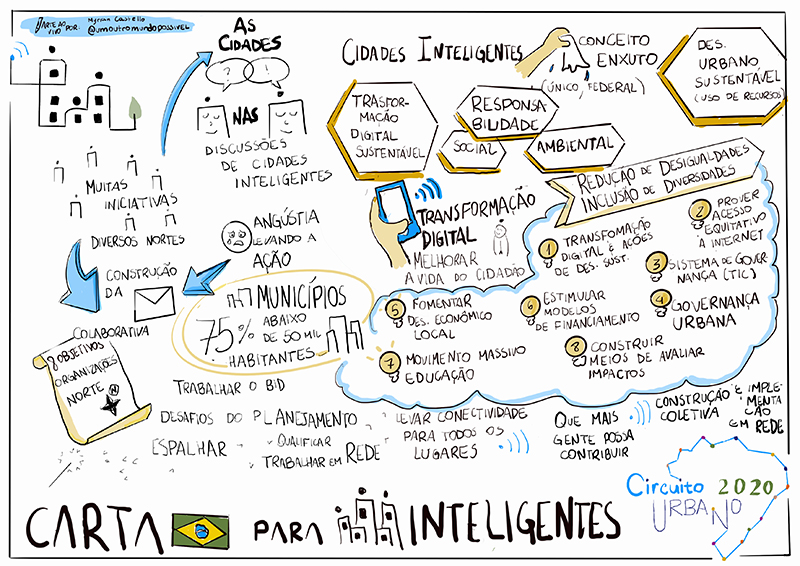 ARTE AO
VIVO POR:
Myrian Castello
@umoutromundopossivel
AS
CIDADES
?
!
NAS
DISCUSSÕES
DE CIDADES
INTELIGENTES
MUITAS
INICIATIVAS
DIVERSOS NORTES
CIDADES INTELIGENTES
CONCEITO
ENXUTO
(ÚNICO, FEDERAL)
DES.
URBANO
SUSTENTÁVEL
(USO DE RECURSOS)
TRASFOR-
MAÇÃO
DIGITAL
SUSTENTÁVEL
RESPONSA-
BILIDADE
SOCIAL
AMBIENTAL
REDUÇÃO DE DESIGUALDADES
INCLUSÃO DE DIVERSIDADES
TRANSFORMAÇÃO
DIGITAL
MELHORAR
A VIDA DO CIDADÃO
ANGÚSTIA
LEVANDO A
AÇÃO
CONSTRUÇÃO
DA
COLABORATIVA
8 OBJETIVOS
ORGANIZAÇÕES
NORTE
MUNICÍPIOS
75%
ABAIXO
DE 50 MIL
HABITANTES
1 TRANSFOMAÇÃO
DIGITAL E AÇÕES
DE DES. SUST.
2 PROVER
ACESSO
EQUITATIVO
À INTERNET
3 SISTEMA DE GOVER-
NANÇA (TIC)
4 GOVERNANÇA
URBANA
5 FOMENTAR
DES. ECONÔMICO
LOCAL
6 ESTIMULAR
MODELOS
DE FINANCIAMENTO
7 MOVIMENTO MASSIVO
EDUCAÇÃO
8 CONSTRUIR
MEIOS DE AVALIAR
IMPACTOS
TRABALHAR O BID
DESAFIOS DO PLANEJAMENTO
ESPALHAR
QUALIFICAR
TRABALHAR EM REDE
LEVAR CONECTIVIDADE
PARA TODOS OS
LUGARES
QUE MAIS
GENTE POSSA
CONTRIBUIR
CONSTRUÇÃO E IMPLE-
COLETIVA MENTA
ÇÃO
EM REDE
Circuito 2020
URBANO
CARTA PARA INTELIGENTES